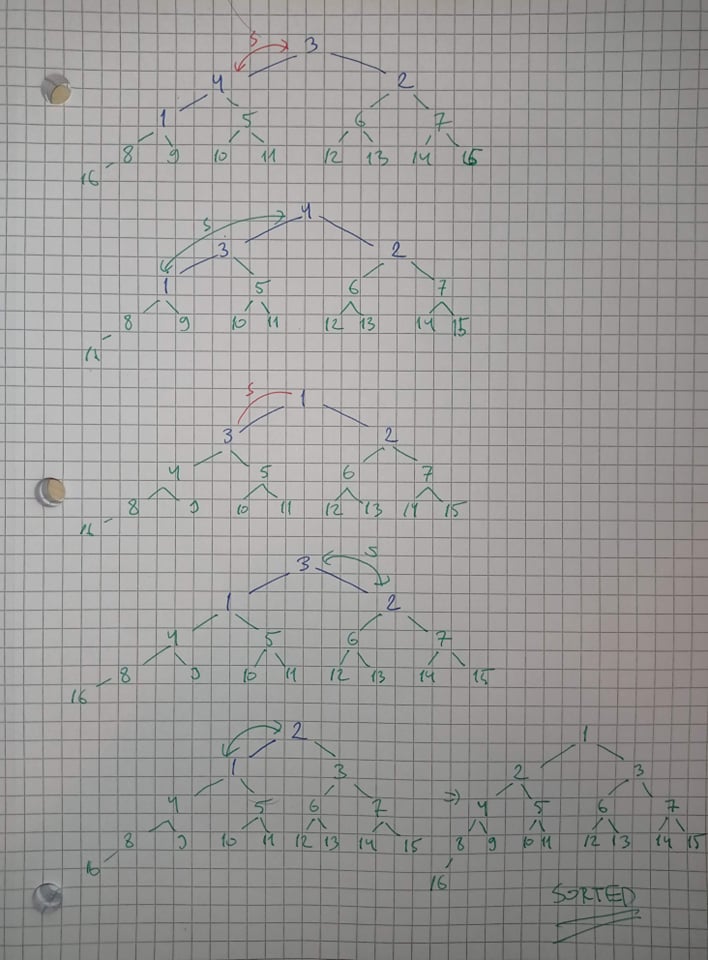 S 3
4 2
1 5 6 7
8 9 10 11 12 13 14 15
16
S 4
3 2
1 5 6 7
8 9 10 11 12 13 14 15
S 1
3 2
4 5 6 7
8 9 10 11 12 13 14 15
3 S
1 2
4 5 6 7
8 9 10 11 12 13 14 15
16
2 1
1 3 2 3
4 5 6 7 => 4 5 6 7
8 9 10 11 12 13 14 15 8 9 10 11 12 13 14 15
16 16
SORTED